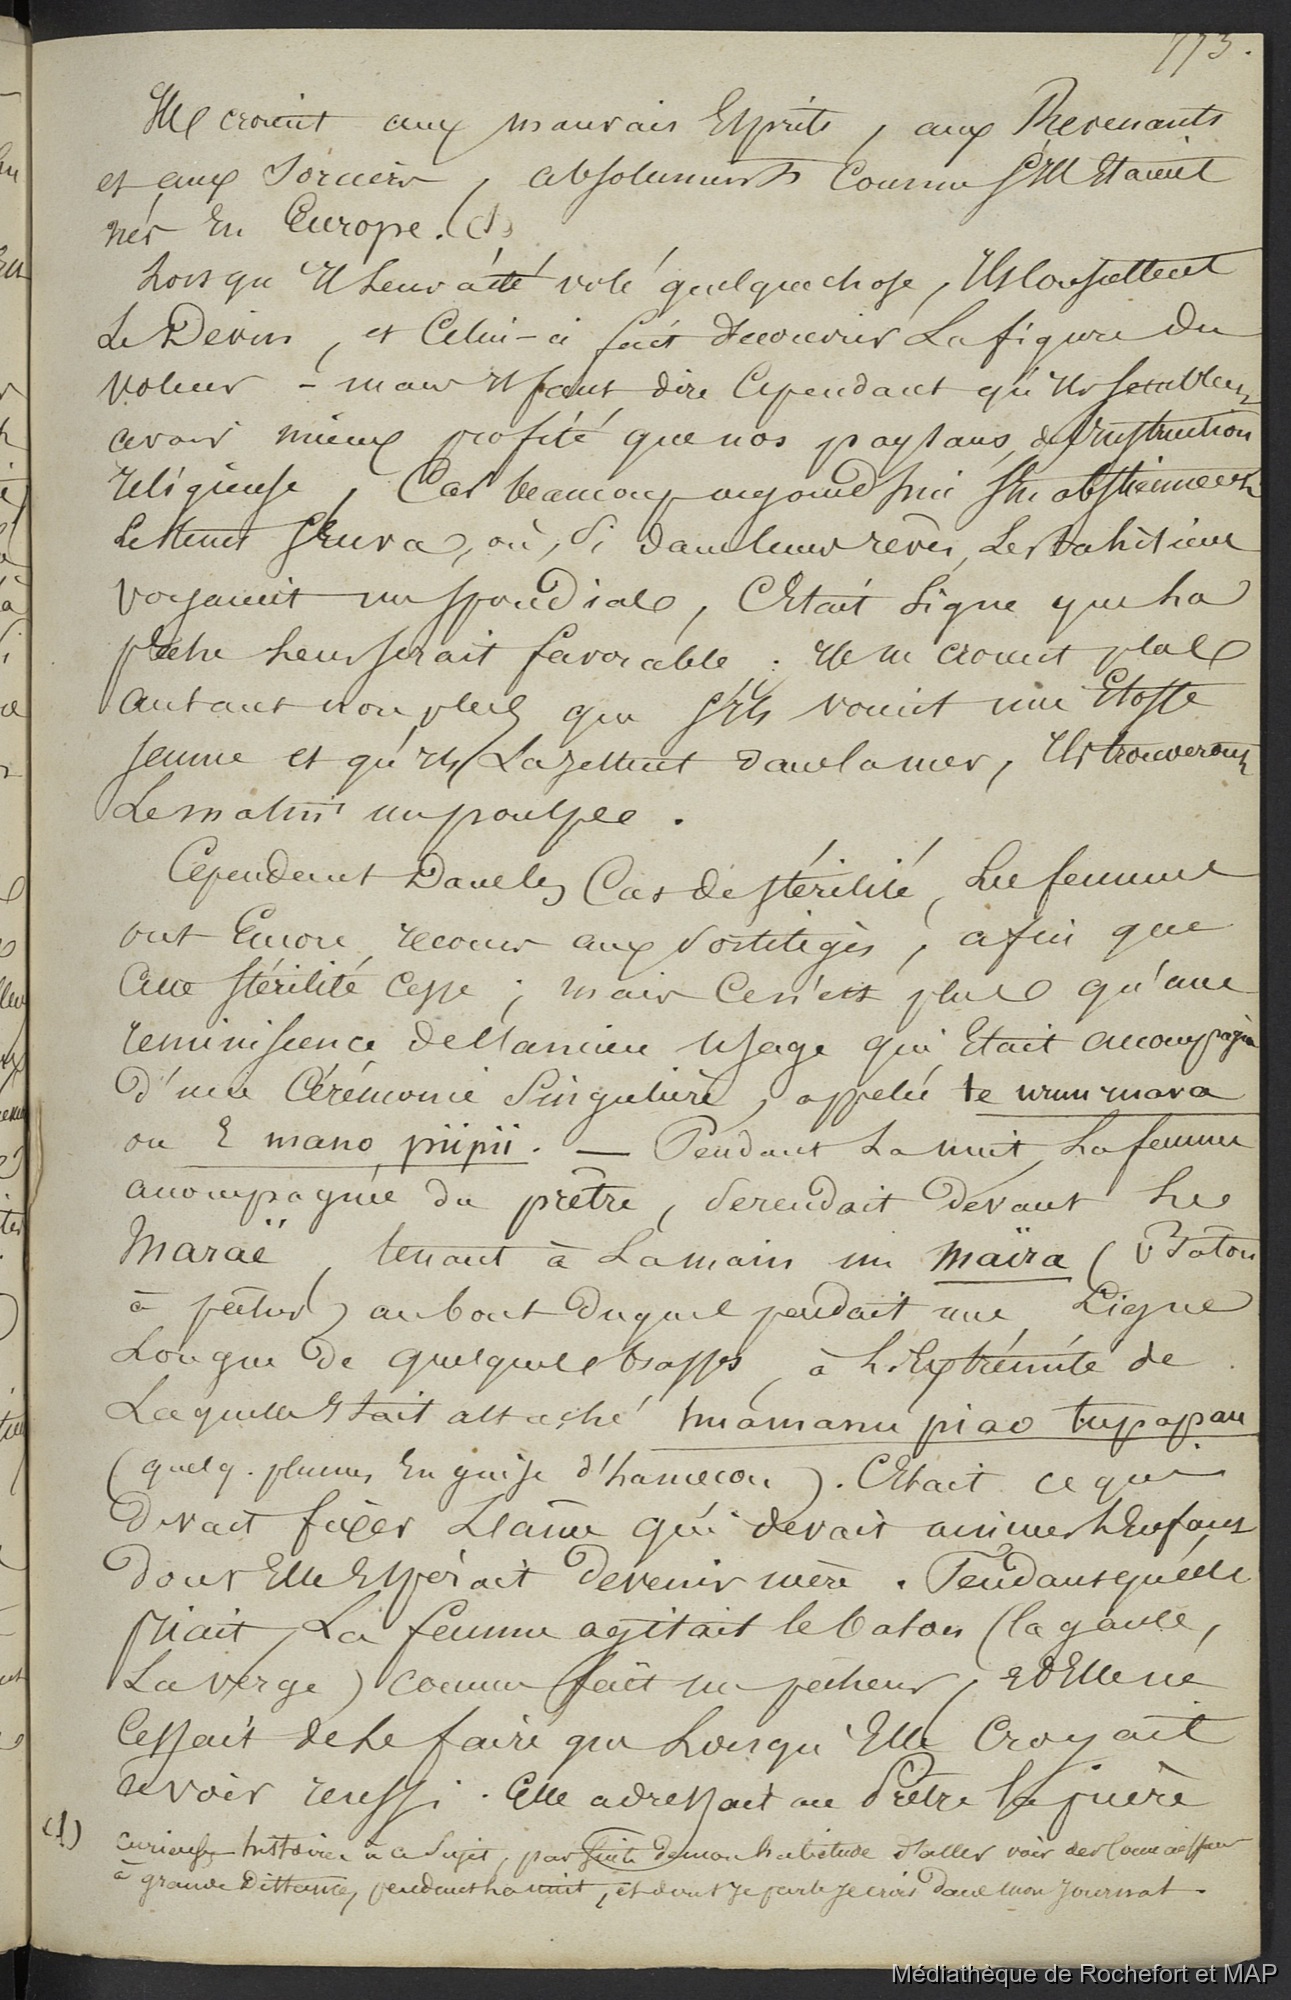 773.
Ils croient aux mauvais Esprits, aux Revenants
et aux Sorciers, absolument comme s'ils Etaient
nés En Europe. (1)
Lorsqu'Il leur a été volé quelque chose, Ils consultent
Le Devin, et Celui-ci fait découvrir La figure du
voleur - mais Il faut dire Cependant qu'Ils semblent
avoir mieux profité que nos paysans, de l'instruction
religieuse, Car beaucoup aujourd'hui s'en abstiennent
, où, Si dans leurs rêves, Les tahitiens
voyaient un spondiale, C'Etait Signe que La
pêche leur serait favorable. Ils ne croient plus
autant non plus que s'ils voient une Etoffe
jaune et qu'ils La jettent dans la mer, Ils trouveront
Le matin un poulpe.
Cependant Dans les Cas de stérilité, Les femmes
ont Encore recours aux Sortilèges, afin que
Cette stérilité cesse ; mais Ce n'est plus qu'une
réminiscence de l'ancien Usage qui Etait accompagné
D'une Cérémonie Singulière, appelée te urumarava
ou E mano piipii. — Pendant La nuit, La femme
accompagnée du prêtre, Se rendait Devant Les
Maraë, tenant à La main un maïra (Bâton
à pêcher) au bout Duquel pendait une Ligne
Longue de quelques brasses, à L'Extrémité de
Laquelle Etait attaché humamanu piao tupapau
(quelq. plumes En guise d'hameçon). C'Etait ce qui
Devait fixer L'âme qui devait animer L'Enfant
dont Elle Espérait Devenir mère. Pendant qu'elle
priait, La femme agitait le baton (la gaule,
La verge) comme fait un pêcheur, Et Elle ne
Cessait de Le faire que Lorsqu'Elle Croyait
avoir réussi. Elle adressait au Prêtre la prière
(1) curieuse histoire à ce Sujet, par suite de mon habitude d'aller voir des Connaissances
à grande Distance, pendant La nuit, et dont Je parle Je crois Dans mon Journal.
Médiathèque de Rochefort et MAP